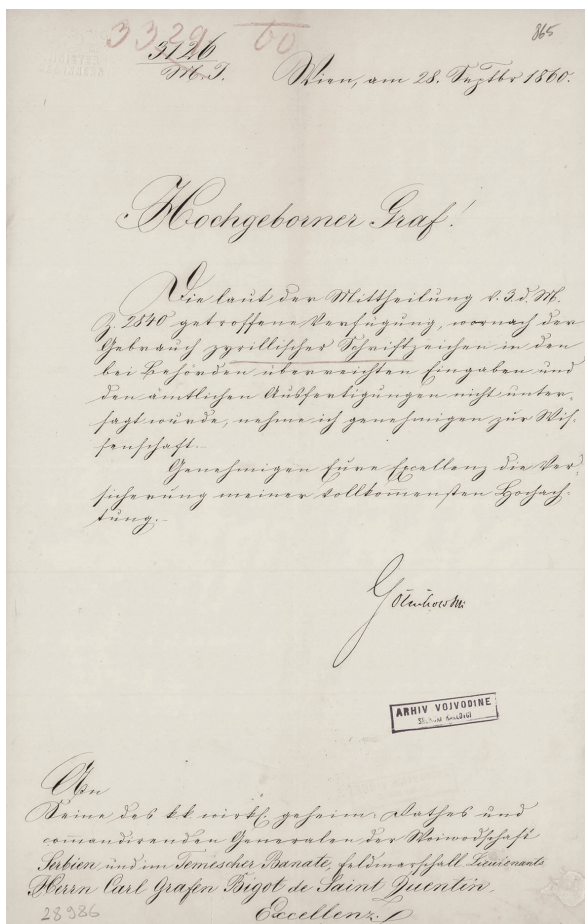 3329/60
865
3126
M. I.
Wien, am 28. Septbr 1860.
Hochgeborner Graf!
Die laut der Mittheilung v. 3. d. M.
Z. 2840 getroffene Verfügung, wornach der
Gebrauch zyrillischer Schriftzeichen in den
bei Behörden überreichten Eingaben und
den ämtlichen Ausfertigungen nicht unter-
sagt wurde, nehme ich genehmigend zur Wis-
senschaft.
Genehmigen Eure Excellenz die Ver-
sicherung meiner vollkommensten Hochach-
tung.
Gołuchowski
ARHIV VOJVODINE
An
Seine des kk wirkl. geheim. Rathes und
commandirenden Generalen der Woiwodschaft
Serbien und im Temescher Banate, Feldmarschall Lieutenants
Herrn Carl Grafen Bigot de Saint Quentin,
Excellenz.
28986